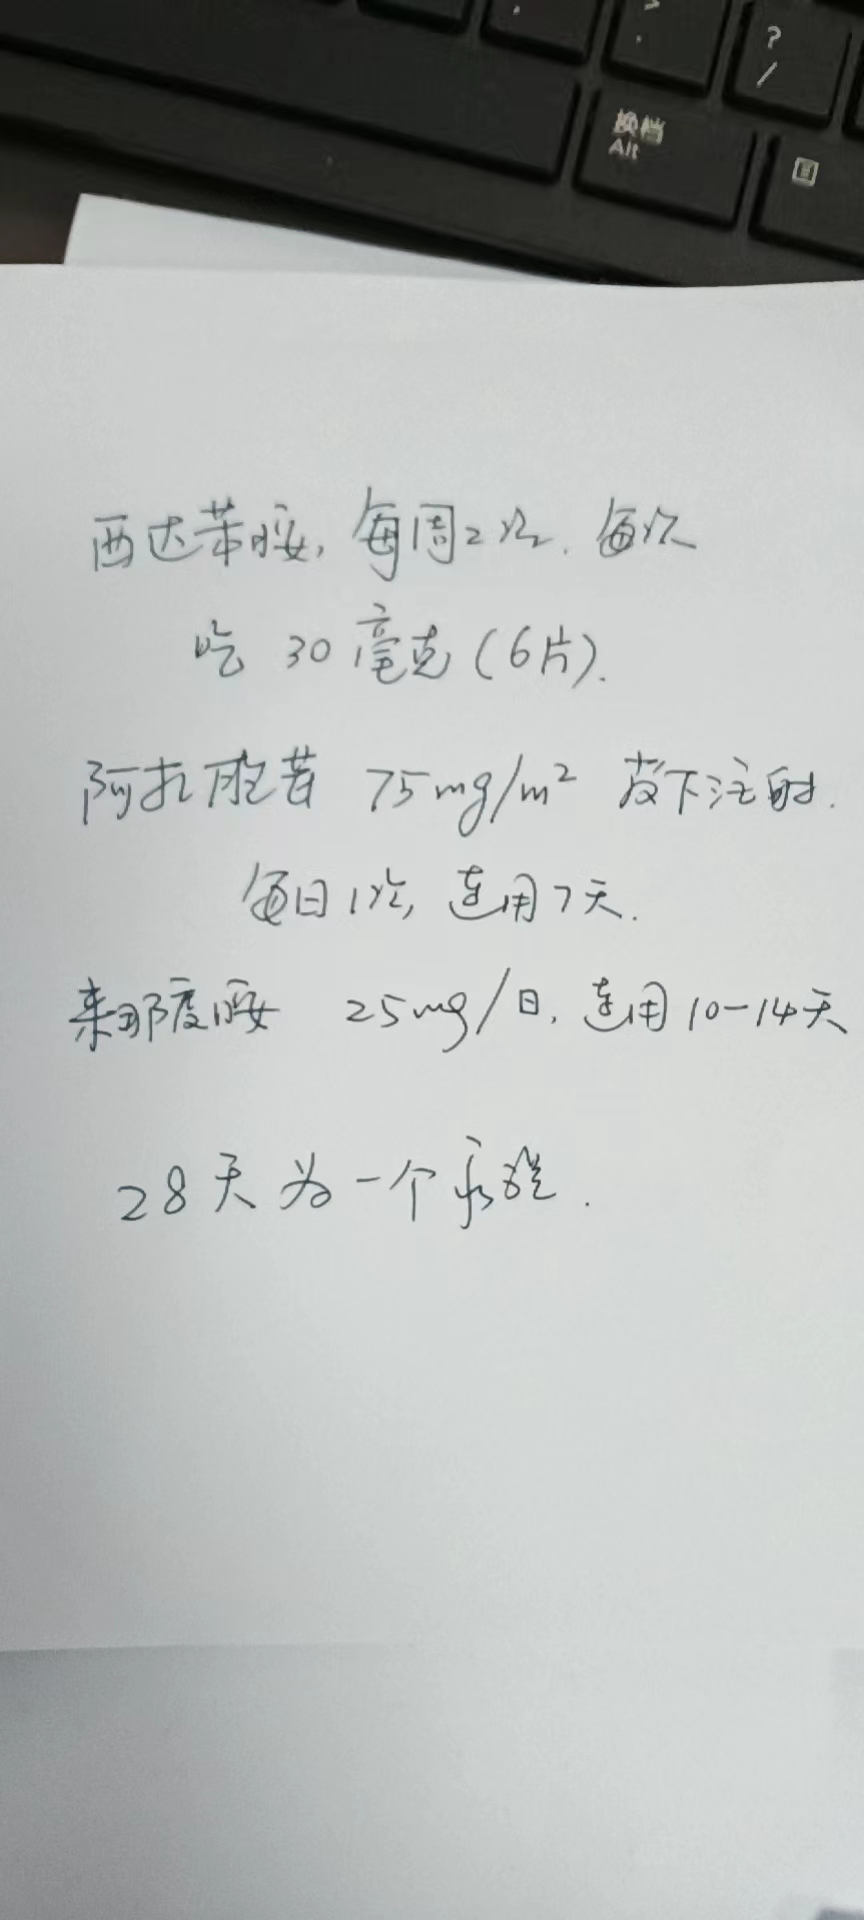 ?
/
换档
Alt
西达苯胺，每周2次，每次
吃 30 毫克（6片）.
阿扎胞苷 75mg/m² 皮下注射.
每日1次，连用7天.
来那度胺 25mg/日，连用10-14天
28天为一个疗程.